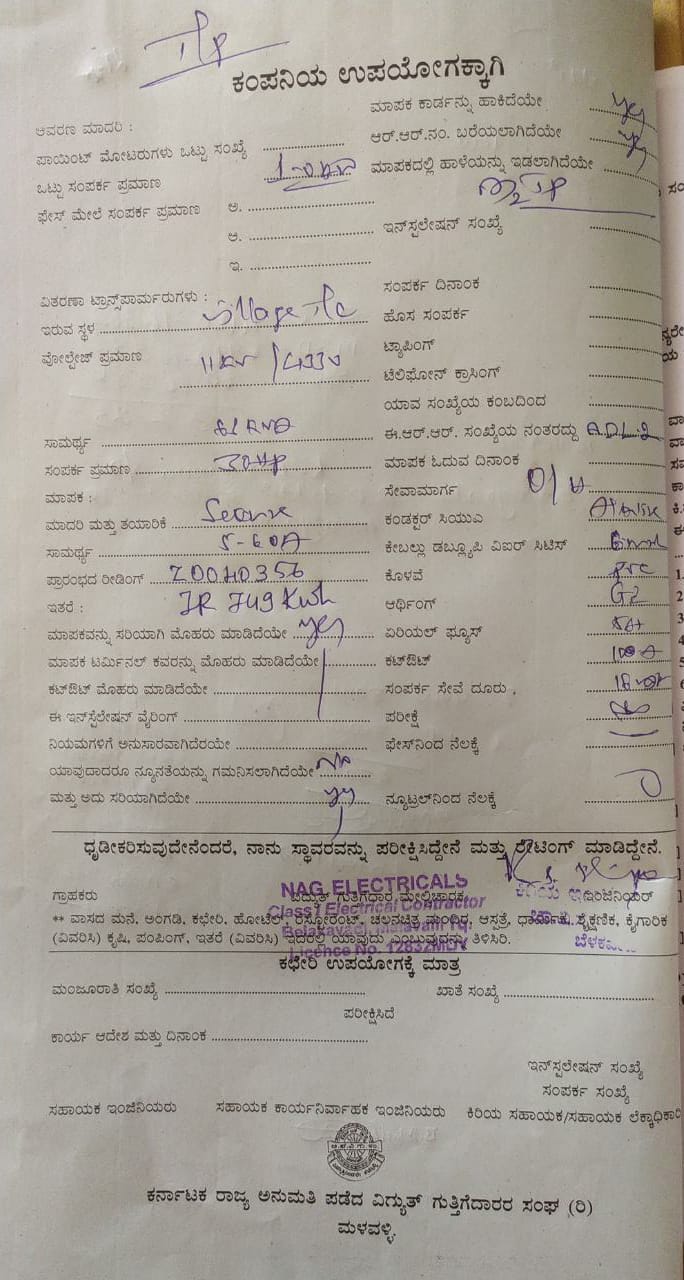 ಕಂಪನಿಯ ಉಪಯೋಗಕ್ಕಾಗಿ
ಆವರಣ ಮಾದರಿ :
ಮಾಪಕ ಕಾರ್ಡನ್ನು ಹಾಕಿದೆಯೇ ........ yes
ಪಾಯಿಂಟ್ ಮೋಟರುಗಳು ಒಟ್ಟು ಸಂಖ್ಯೆ ........
ಆರ್.ಆರ್.ನಂ. ಬರೆಯಲಾಗಿದೆಯೇ ........ yes
ಒಟ್ಟು ಸಂಪರ್ಕ ಪ್ರಮಾಣ ........
ಮಾಪಕದಲ್ಲಿ ಹಾಳೆಯನ್ನು ಇಡಲಾಗಿದೆಯೇ ........
ಫೇಸ್ ಮೇಲೆ ಸಂಪರ್ಕ ಪ್ರಮಾಣ ಅ. ........
ಆ. ........ ಇನ್‌ಸ್ಪಲೇಷನ್ ಸಂಖ್ಯೆ ........
ಇ. ........
ವಿತರಣಾ ಟ್ರಾನ್ಸ್‌ಪಾರ್ಮರುಗಳು :
ಸಂಪರ್ಕ ದಿನಾಂಕ ........
ಇರುವ ಸ್ಥಳ ........ Village
ಹೊಸ ಸಂಪರ್ಕ ........
ವೋಲ್ಟೇಜ್ ಪ್ರಮಾಣ 11KV / 433V
ಟ್ಯಾಪಿಂಗ್ ........
ಟೆಲಿಫೋನ್ ಕ್ರಾಸಿಂಗ್ ........
ಯಾವ ಸಂಖ್ಯೆಯ ಕಂಬದಿಂದ ........
ಸಾಮರ್ಥ್ಯ ........
ಈ.ಆರ್.ಆರ್. ಸಂಖ್ಯೆಯ ನಂತರದ್ದು ADL2
ಸಂಪರ್ಕ ಪ್ರಮಾಣ ........ 30HP
ಮಾಪಕ ಓದುವ ದಿನಾಂಕ ........
ಮಾಪಕ :
ಸೇವಾಮಾರ್ಗ O/H
ಮಾದರಿ ಮತ್ತು ತಯಾರಿಕೆ ........
ಕಂಡಕ್ಟರ್ ಸಿಯುಎ ........
ಸಾಮರ್ಥ್ಯ ........ 5-60A
ಕೇಬಲ್ಲು ಡಬ್ಲ್ಯೂಪಿ ವಿಐರ್ ಸಿಟಿಸ್ ........
ಪ್ರಾರಂಭದ ರೀಡಿಂಗ್ ........ Z0040356
ಕೊಳವೆ ........ PVC
ಇತರೆ : IR 749 KWh
ಆರ್ಥಿಂಗ್ ........ GI
ಮಾಪಕವನ್ನು ಸರಿಯಾಗಿ ಮೊಹರು ಮಾಡಿದೆಯೇ ........ yes
ಏರಿಯಲ್ ಫ್ಯೂಸ್ ........
ಮಾಪಕ ಟರ್ಮಿನಲ್ ಕವರನ್ನು ಮೊಹರು ಮಾಡಿದೆಯೇ
ಕಟ್‌ಔಟ್ ........ 100A
ಕಟ್‌ಔಟ್ ಮೊಹರು ಮಾಡಿದೆಯೇ ........
ಸಂಪರ್ಕ ಸೇವೆ ದೂರು . ........
ಈ ಇನ್‌ಸ್ಪೆಲೇಷನ್ ವೈರಿಂಗ್ ........
ಪರೀಕ್ಷೆ ........
ನಿಯಮಗಳಿಗೆ ಅನುಸಾರವಾಗಿದೆರಯೇ ........
ಫೇಸ್‌ನಿಂದ ನೆಲಕ್ಕೆ ........
ಯಾವುದಾದರೂ ನ್ಯೂನತೆಯನ್ನು ಗಮನಿಸಲಾಗಿದೆಯೇ No
ಮತ್ತು ಅದು ಸರಿಯಾಗಿದೆಯೇ ........ yes
ನ್ಯೂಟ್ರಲ್‌ನಿಂದ ನೆಲಕ್ಕೆ ........
ಧೃಡೀಕರಿಸುವುದೇನೆಂದರೆ, ನಾನು ಸ್ಥಾವರವನ್ನು ಪರೀಕ್ಷಿಸಿದ್ದೇನೆ ಮತ್ತು ರೇಟಿಂಗ್ ಮಾಡಿದ್ದೇನೆ.
NAG ELECTRICALS
ಗ್ರಾಹಕರು ವಿದ್ಯುತ್ ಗುತ್ತಿಗೆಧಾರ ಮೇಲಿಚಾರಕ ಕಿರಿಯ ಇಂಜಿನಿಯರ್
Class1 Electrical Contractor
** ವಾಸದ ಮನೆ, ಅಂಗಡಿ, ಕಛೇರಿ, ಹೋಟೆಲ್, ರೆಸ್ಟೋರಂಟ್, ಚಲನಚಿತ್ರ ಮಂಧಿರ, ಆಸ್ಪತ್ರೆ, ಧಾರ್ಮಿಕ, ಶೈಕ್ಷಣಿಕ, ಕೈಗಾರಿಕ
Belakavadi, Malavalli Tq.
(ವಿವರಿಸಿ) ಕೃಷಿ, ಪಂಪಿಂಗ್, ಇತರೆ (ವಿವರಿಸಿ) ಇದರಲ್ಲಿ ಯಾವುದು ಎಂಬುವುದನ್ನು ತಿಳಿಸಿರಿ.
Licence No. 12832MDY
ಕಛೇರಿ ಉಪಯೋಗಕ್ಕೆ ಮಾತ್ರ
ಮಂಜೂರಾತಿ ಸಂಖ್ಯೆ ........ ಖಾತೆ ಸಂಖ್ಯೆ ........
ಪರೀಕ್ಷಿಸಿದೆ
ಕಾರ್ಯ ಆದೇಶ ಮತ್ತು ದಿನಾಂಕ ........
ಇನ್‌ಸ್ಪಲೇಷನ್ ಸಂಖ್ಯೆ
ಸಂಪರ್ಕ ಸಂಖ್ಯೆ
ಸಹಾಯಕ ಇಂಜಿನಿಯರು ಸಹಾಯಕ ಕಾರ್ಯನಿರ್ವಾಹಕ ಇಂಜಿನಿಯರು ಕಿರಿಯ ಸಹಾಯಕ/ಸಹಾಯಕ ಲೆಕ್ಕಾಧಿಕಾರಿ
ಕರ್ನಾಟಕ ರಾಜ್ಯ ಅನುಮತಿ ಪಡೆದ ವಿದ್ಯುತ್ ಗುತ್ತಿಗೆದಾರರ ಸಂಘ (ರಿ)
ಮಳವಳ್ಳಿ.